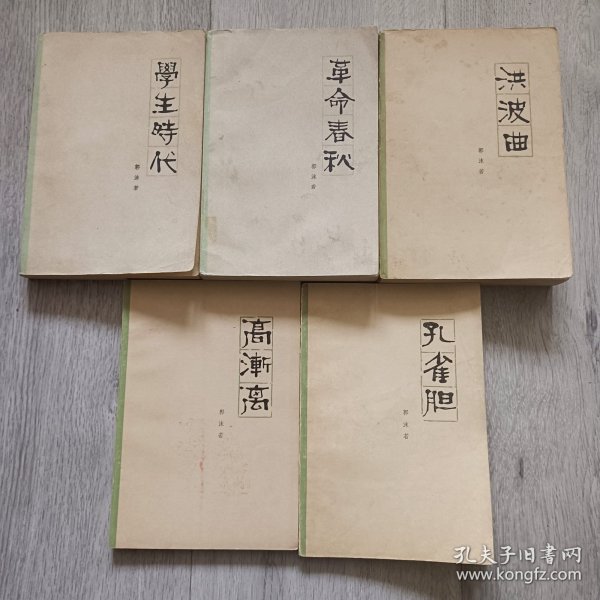 學生時代
郭沫著
革命春秋
郭沫著
洪波曲
郭沫著
高漸离
郭沫著
孔雀胆
郭沫著
孔夫子旧书网
www.kongfz.com